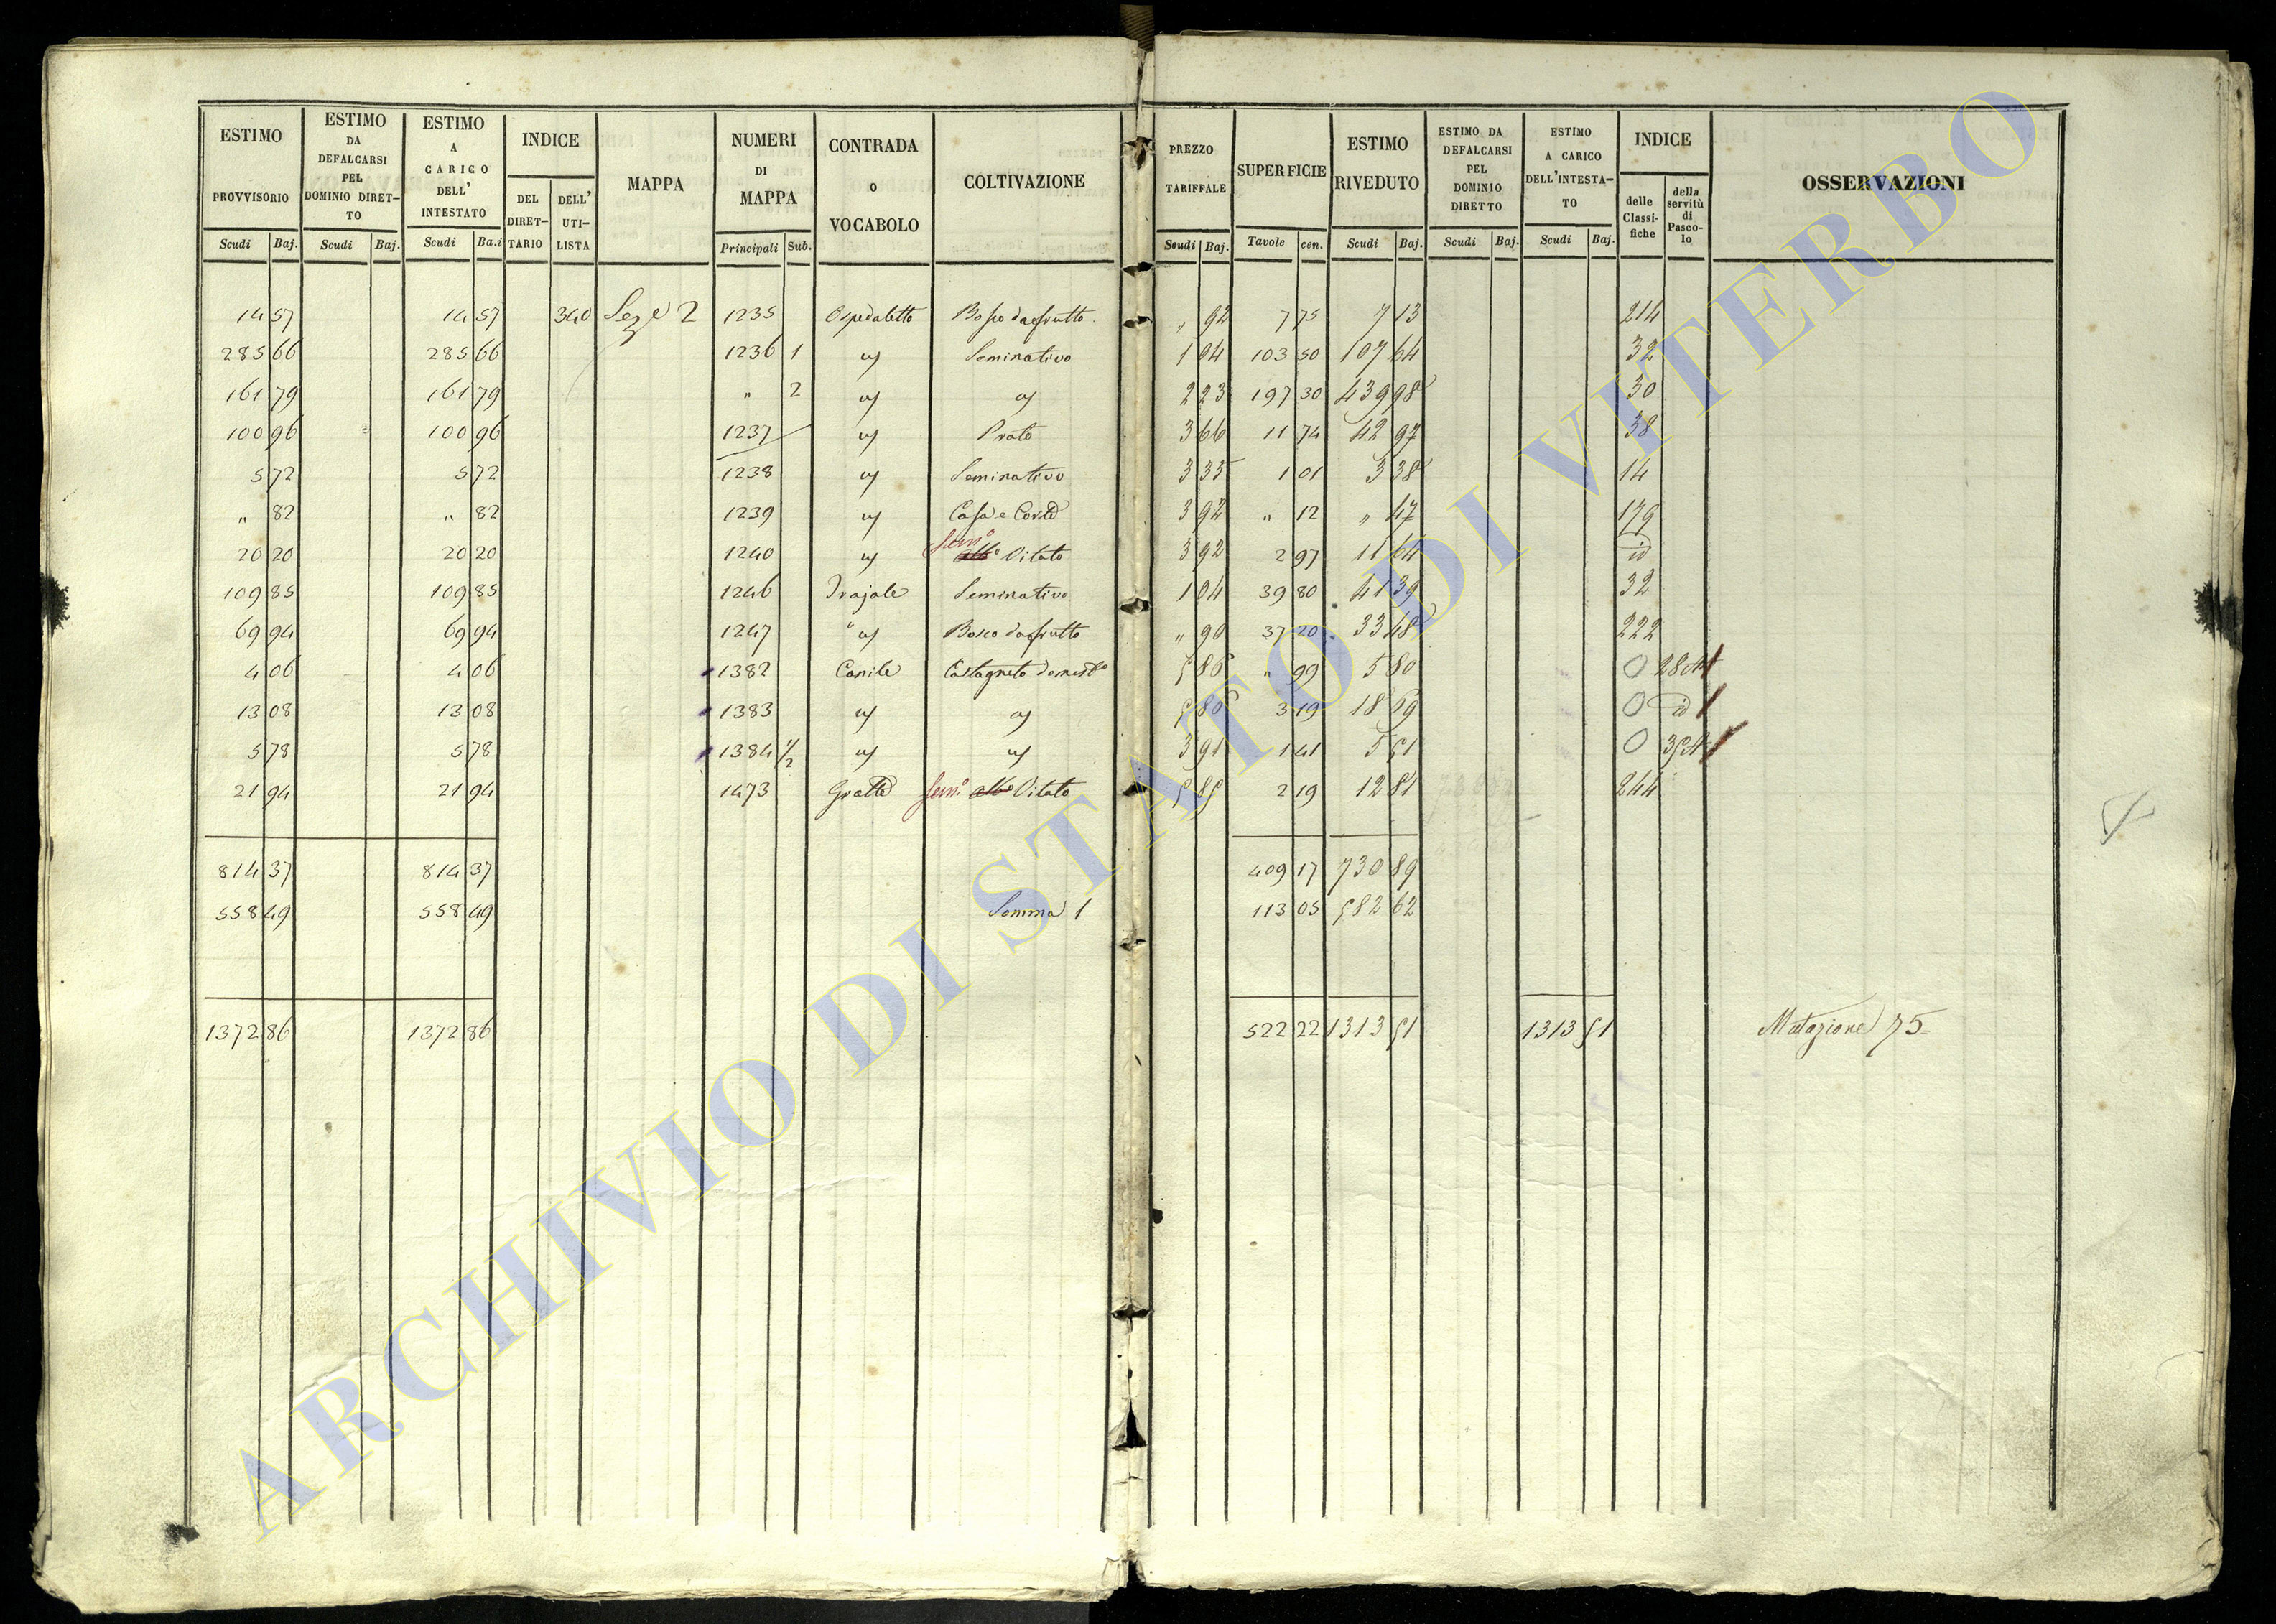 ESTIMO PROVVISORIO Scudi Baj. | ESTIMO DA DEFALCARSI PEL DOMINIO DIRET-TO Scudi Baj. | ESTIMO A CARICO DELL' INTESTATO Scudi Ba.i | INDICE DEL DIRET-TARIO | DELL' UTI-LISTA | MAPPA | NUMERI DI MAPPA Principali Sub. | CONTRADA O VOCABOLO | COLTIVAZIONE | PREZZO TARIFFALE Scudi Baj. | SUPERFICIE Tavole cen. | ESTIMO RIVEDUTO Scudi Baj. | ESTIMO DA DEFALCARSI PEL DOMINIO DIRETTO Scudi Baj. | ESTIMO A CARICO DELL'INTESTA-TO Scudi Baj. | INDICE delle Classi-fiche | della servitù di Pasco-lo | OSSERVAZIONI
14 57 14 57 340 Sez.e 2 1235 Ospedaletto Bosco da frutto „ 92 7 75 7 13 214
285 66 285 66 1236 1 id Seminativo 1 04 103 50 107 64 32
161 79 161 79 „ 2 id id 2 23 197 30 439 98 30
100 96 100 96 1237 id Prato 3 66 11 74 42 97 38
5 72 5 72 1238 id Seminativo 3 35 1 01 3 38 14
„ 82 „ 82 1239 id Casa e Corte 3 92 „ 12 „ 47 179
20 20 20 20 1240 id Sem.o Vitato 3 92 2 97 11 64 id
109 85 109 85 1246 Trajale Seminativo 1 04 39 80 41 39 32
69 94 69 94 1247 „ id Bosco da frutto „ 90 37 20 33 48 222
4 06 4 06 1382 Canile Castagneto domest.o 5 86 „ 99 5 80 0 28
13 08 13 08 1383 id id 5 86 3 19 18 69 0 id
5 78 5 78 1384 1/2 id id 3 91 1 41 5 51 0
21 94 21 94 1473 Grotte Sem.o Vitato 5 85 2 19 12 81 244
814 37 814 37 409 17 730 89
558 49 558 49 Somma 1 113 05 582 62
1372 86 1372 86 522 22 1313 51 1313 51 Mutazione 75
ARCHIVIO DI STATO DI VITERBO